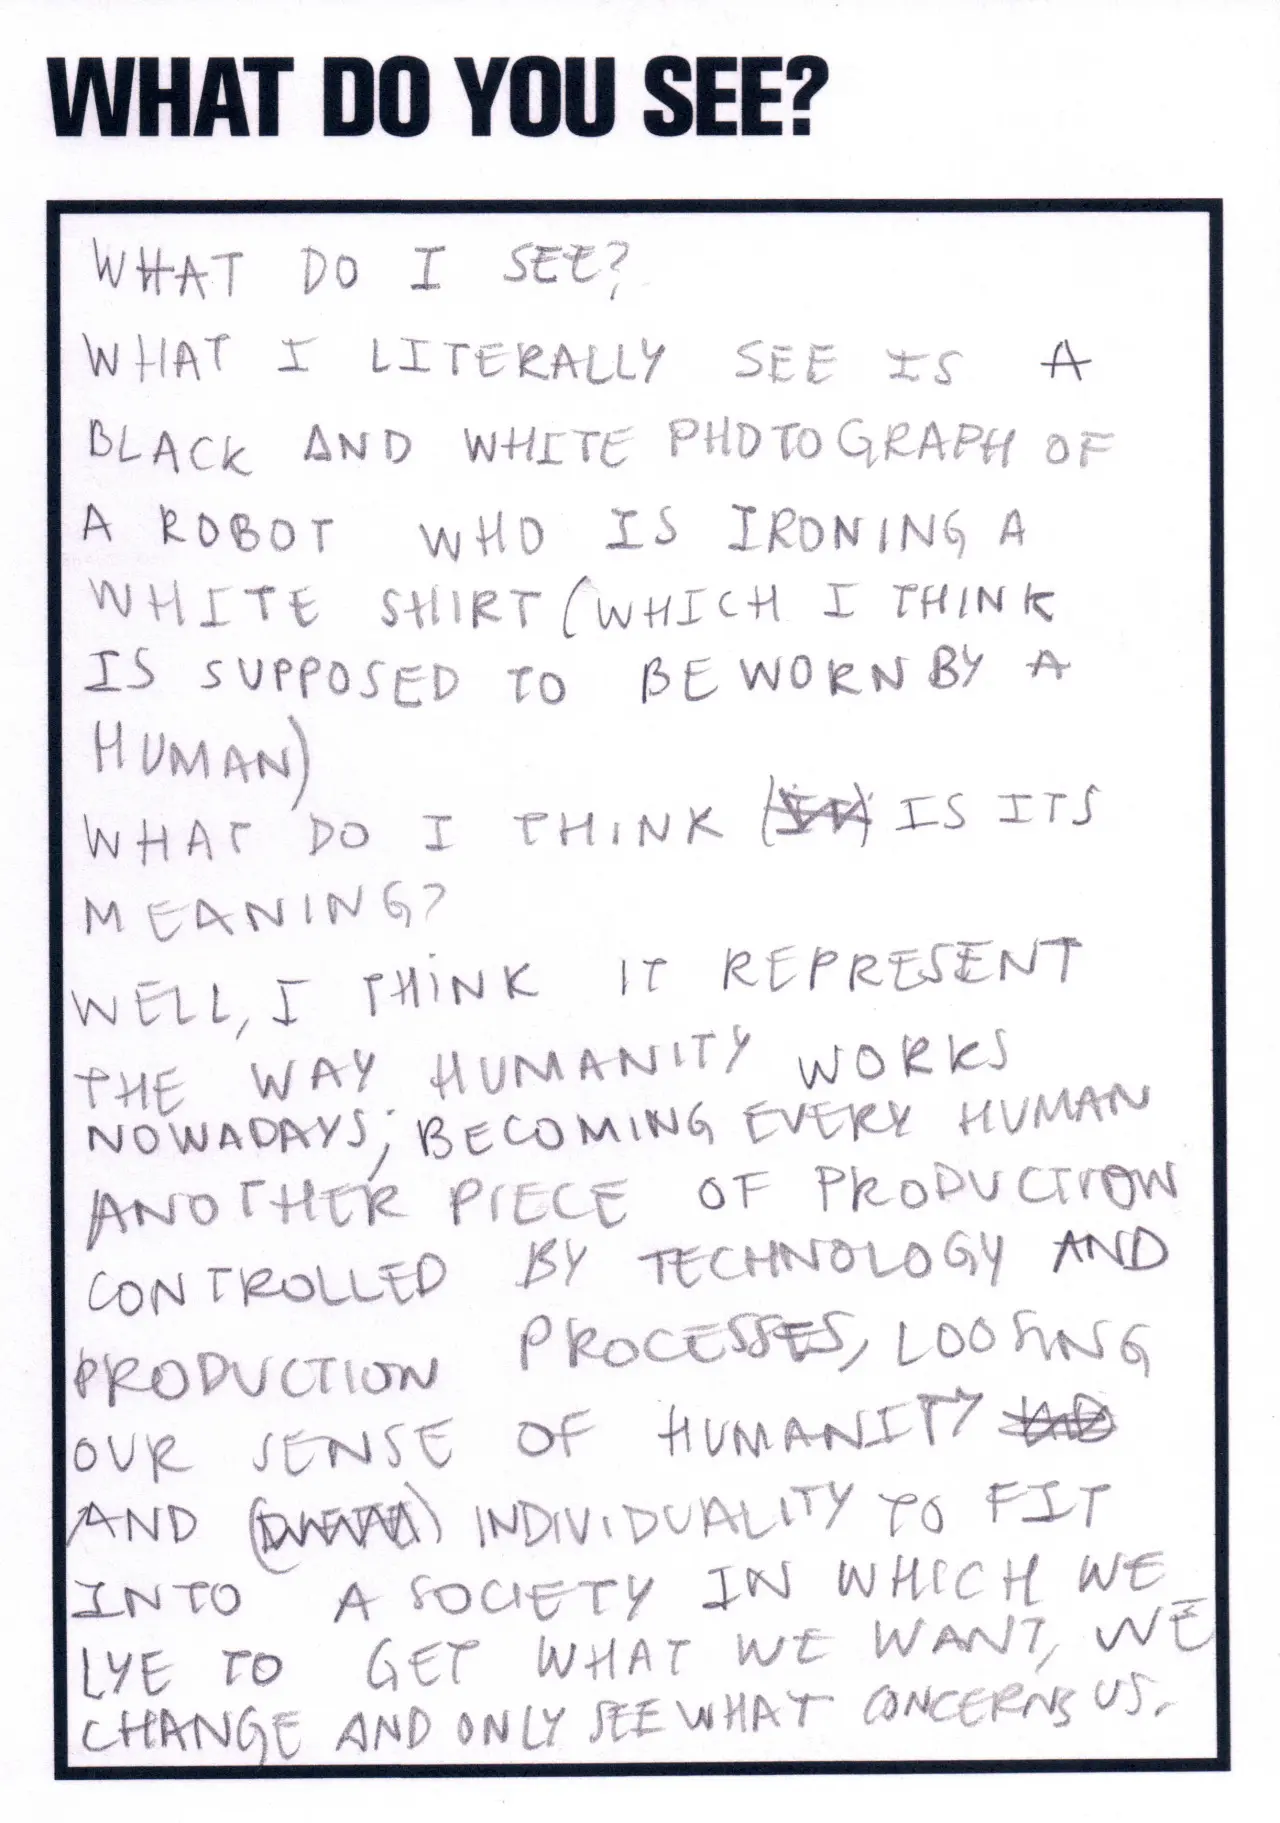 WHAT DO YOU SEE?
WHAT DO I SEE?
WHAT I LITERALLY SEE IS A
BLACK AND WHITE PHOTOGRAPH OF
A ROBOT WHO IS IRONING A
WHITE SHIRT (WHICH I THINK
IS SUPPOSED TO BE WORN BY A
HUMAN)
WHAT DO I THINK IS ITS
MEANING?
WELL, I THINK IT REPRESENT
THE WAY HUMANITY WORKS
NOWADAYS; BECOMING EVERY HUMAN
ANOTHER PIECE OF PRODUCTION
CONTROLLED BY TECHNOLOGY AND
PRODUCTION PROCESSES, LOOSING
OUR SENSE OF HUMANITY
AND INDIVIDUALITY TO FIT
INTO A SOCIETY IN WHICH WE
LYE TO GET WHAT WE WANT, WE
CHANGE AND ONLY SEE WHAT CONCERNS US.